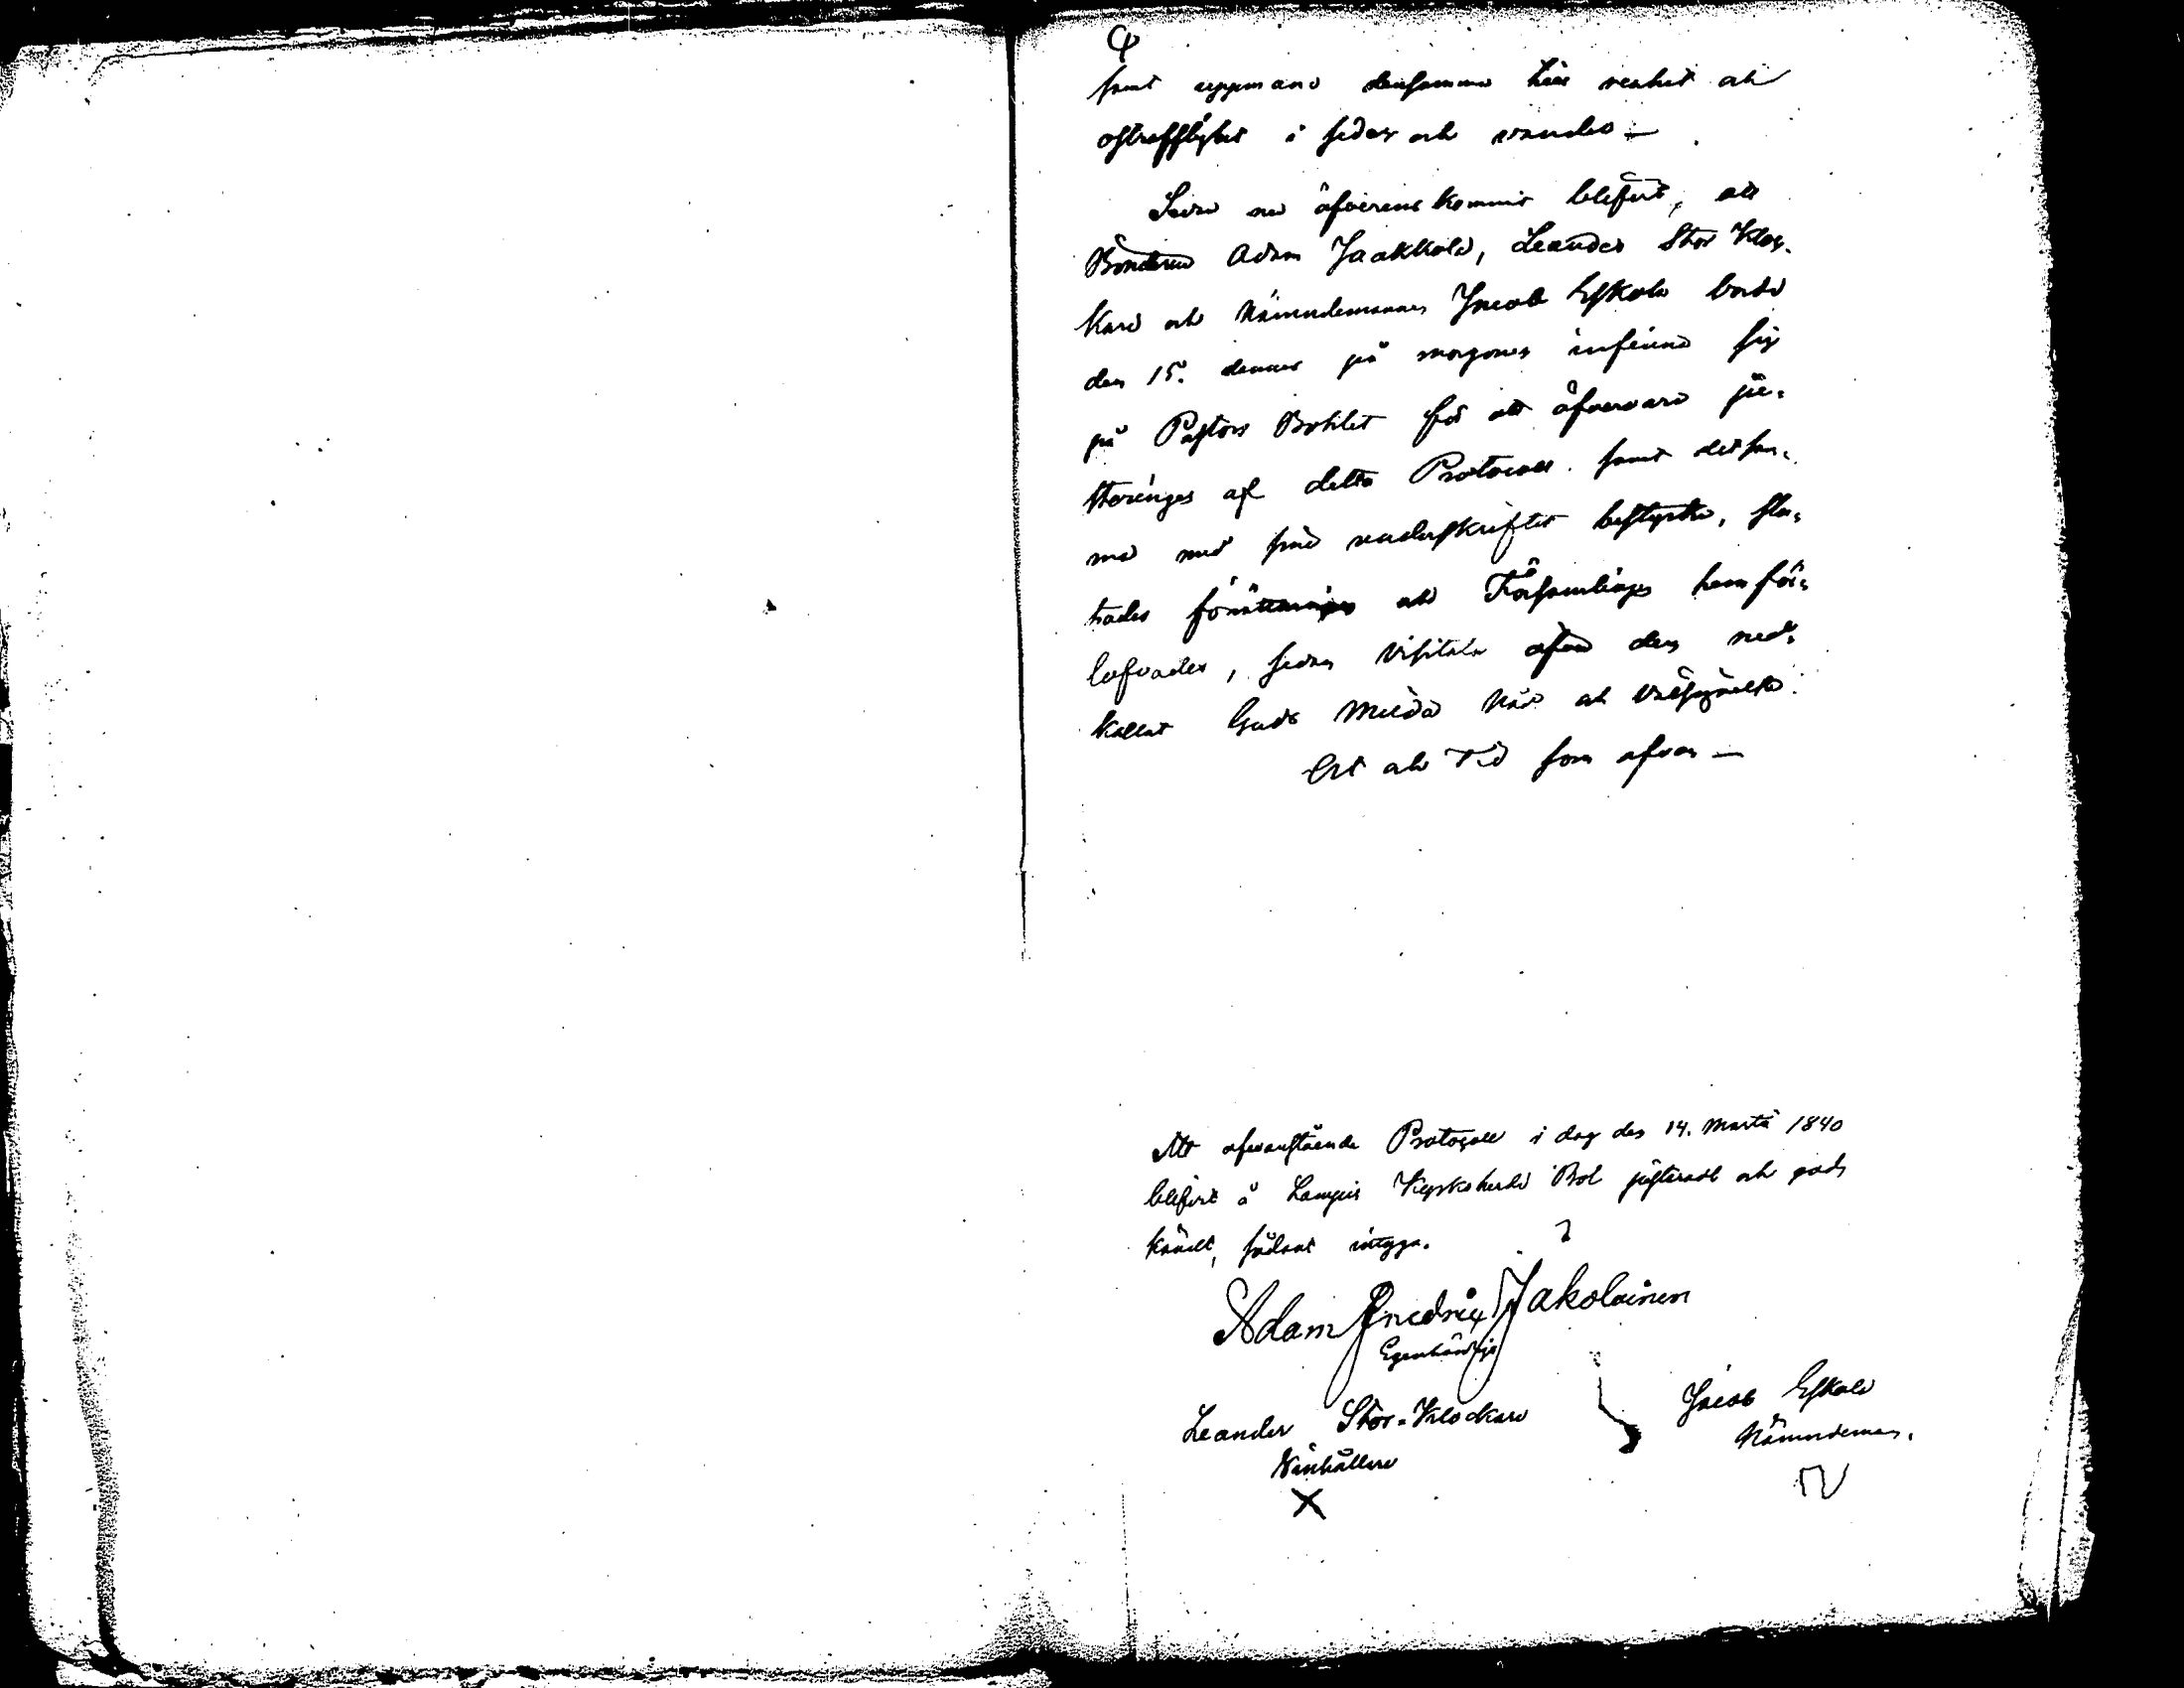 samt uppmana densamma till renhet och
ostrafflighet i seder och vandel —
Sedan nu öfverenskommit blifvit, att
Bönderna Adam Jaakkola, Leander Stor Kloc-
kare och Nämndemannen Jacob Eskola borde
den 15. dennes på morgonen infinna sig
på Pastors Bohlet för att öfvervara ju-
steringen af detta Protocoll samt detsam-
ma med sina underskrifter bestyrka, slu-
tades förrättningen och Församlingen hemför-
lofvades, sedan Visitator öfver den ned-
kallat Guds Milda Nåd och Välsignelse.
Ort och Tid som ofvan —
Att ofvanstående Protocoll i dag den 14. Martii 1840
blifvit å Lampis Kyrkoherde Bol justeradt och god-
kändt, sådant intyga.
Adam Fredric Jakolainen
Egenhändigt
Leander Stor-Klockare
X
Jacob Eskola
Nämndeman.